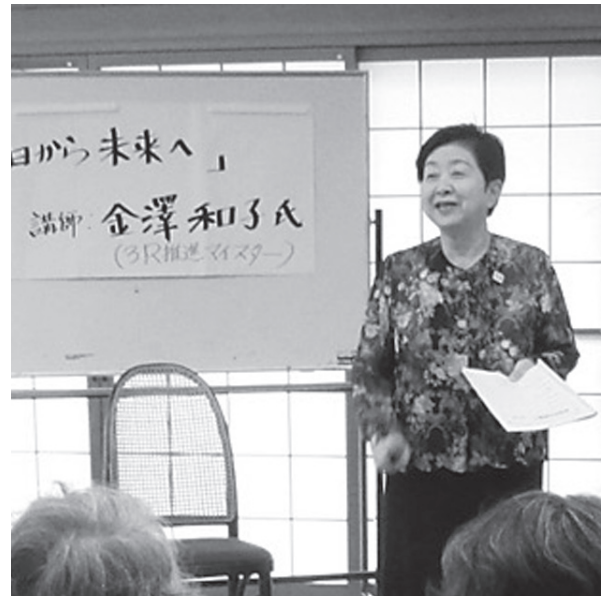 日から未来へ」
講師:金澤和子氏
(3R推進マイスター)